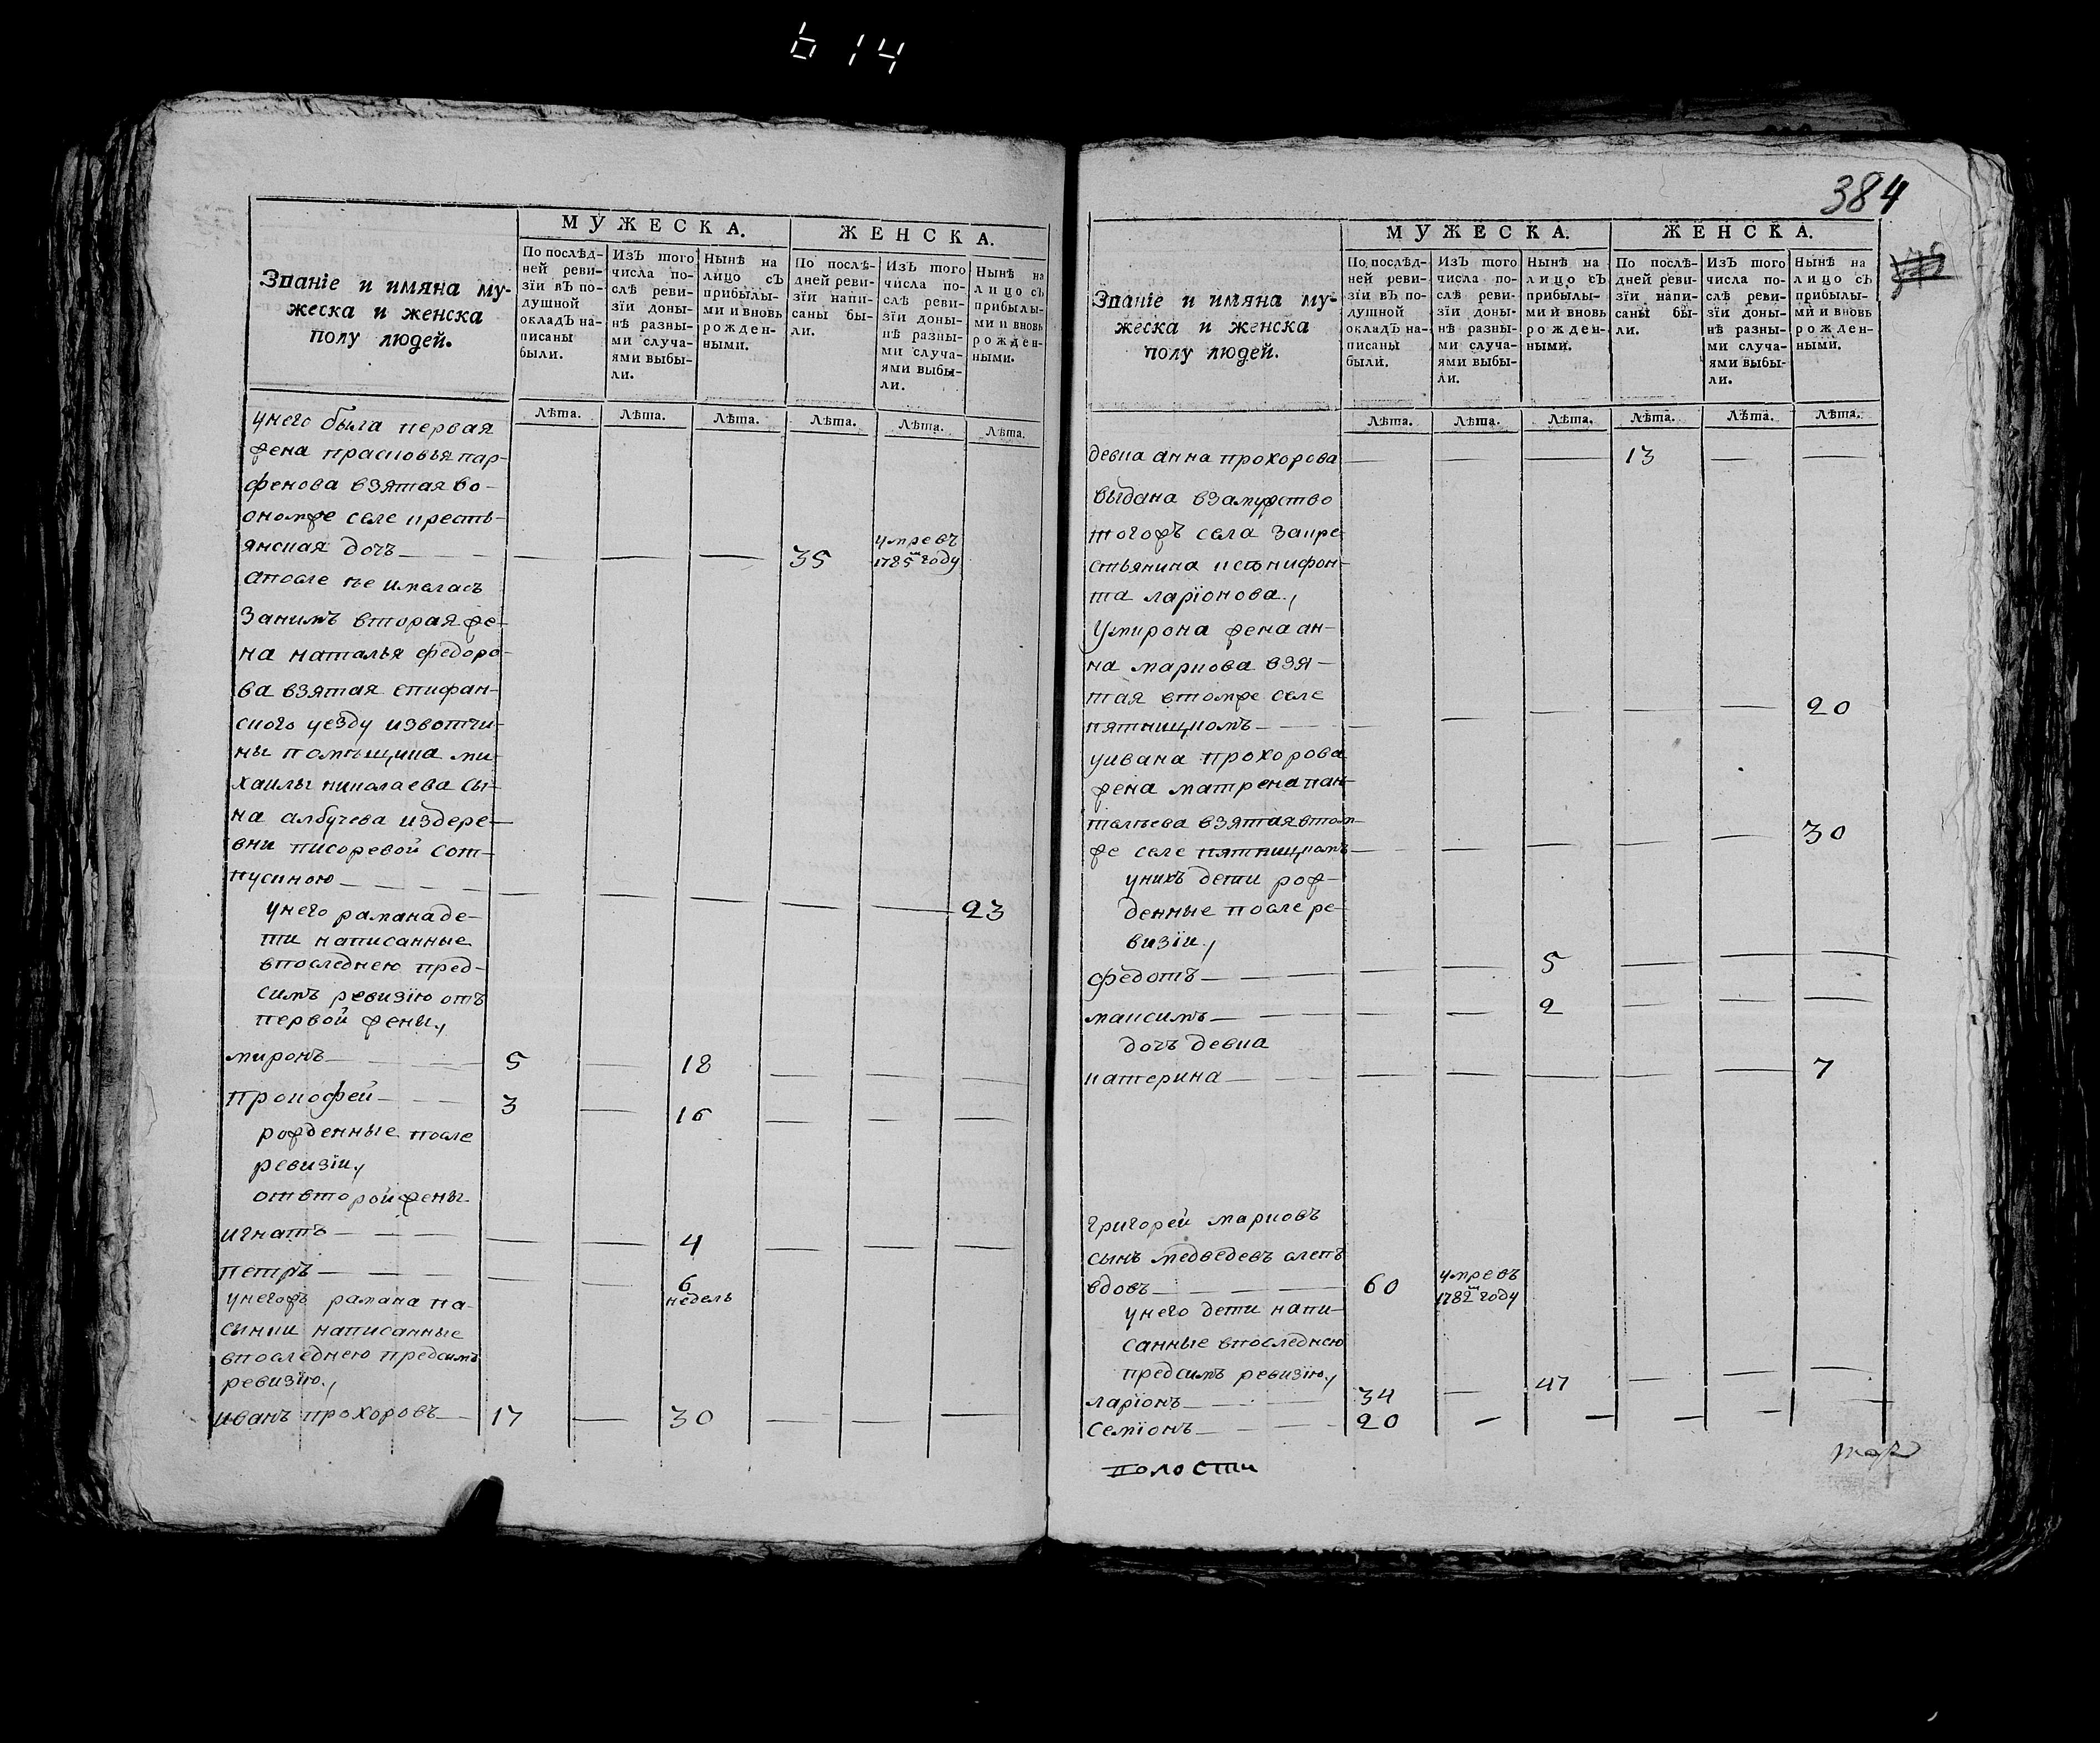 614
МУЖЕСКА.
ЖЕНСКА.
Званіе и имяна му-
жеска и женска
полу людей.
По послѣд-
ней реви-
зїи вЪ по-
душной
окладЪ на-
писаны
были.
ИзЪ того
числа по-
слѣ реви-
зїи доны-
нѣ разны-
ми случа-
ями выбы-
ли.
Нынѣ на
лицо сЪ
прибылы-
ми и вновь
рожден-
ными.
По послѣ-
дней реви-
зїи напи-
саны бы-
ли.
ИзЪ того
числа по-
слѣ реви-
зїи доны-
нѣ разны-
ми случа-
ями выбы-
ли.
Нынѣ на
лицо сЪ
прибылы-
ми и вновь
рожден-
ными.
Лѣта. Лѣта. Лѣта. Лѣта. Лѣта. Лѣта.
унего была первая
жена прасковья пар-
фенова взятая во-
ономже селе кресть-
янская дочь — — — — 35 умре въ 1785м году
апосле ее имеласъ
Занимъ вторая же-
на наталья федоро-
ва взятая епифан-
ского уезду извотчи-
ны помѣщика ми-
хаилы николаева сы-
на албучева издере-
вни писоревой сот-
пускною — — — — — — 23
унего рамана де-
ти написанные
впоследнею пред-
симъ ревизїю отъ
первой жены,
миронъ — 5 — 18 — — —
прокофей — 3 — 16 — — —
рожденные после
ревизїи,
отвторой жены
игнатъ — — — 4 — — —
петръ — — — 6 недель
унегожъ рамана па-
сынки написанные
впоследнею предсимъ
ревизїю,
иванъ прохоровъ — 17 — 30 — — —
384
МУЖЕСКА.
ЖЕНСКА.
Званіе и имяна му-
жеска и женска
полу людей.
По послѣд-
ней реви-
зїи вЪ по-
душной
окладЪ на-
писаны
были.
ИзЪ того
числа по-
слѣ реви-
зїи доны-
нѣ разны-
ми случа-
ями выбы-
ли.
Нынѣ на
лицо сЪ
прибылы-
ми и вновь
рожден-
ными.
По послѣ-
дней реви-
зїи напи-
саны бы-
ли.
ИзЪ того
числа по-
слѣ реви-
зїи доны-
нѣ разны-
ми случа-
ями выбы-
ли.
Нынѣ на
лицо сЪ
прибылы-
ми и вновь
рожден-
ными.
Лѣта. Лѣта. Лѣта. Лѣта. Лѣта. Лѣта.
девка анна прохорова — — — 13 — —
выдана взамужство
тогожъ села Закре-
стьянина ксенифон-
та ларїонова,
Умирона жена ан-
на маркова взя-
тая втомже селе
пятницкомъ — — — — — — 20
уивана прохорова
жена матрена пан-
талѣева взятая втом-
же селе пятницкомъ — — — — — 30
унихъ дети рож-
денные после ре-
визїи,
федотъ — — — 5 — — —
максимъ — — — 2 — — —
дочь девка
катерина — — — — — — 7
григорей марковъ
сынъ медведевъ слепъ
вдовъ — 60 умре въ 1782м году
унего дети напи-
санные впоследнею
предсимъ ревизїю,
ларїонъ — 34 — 47 — — —
семїонъ — 20 — — — — —
волости